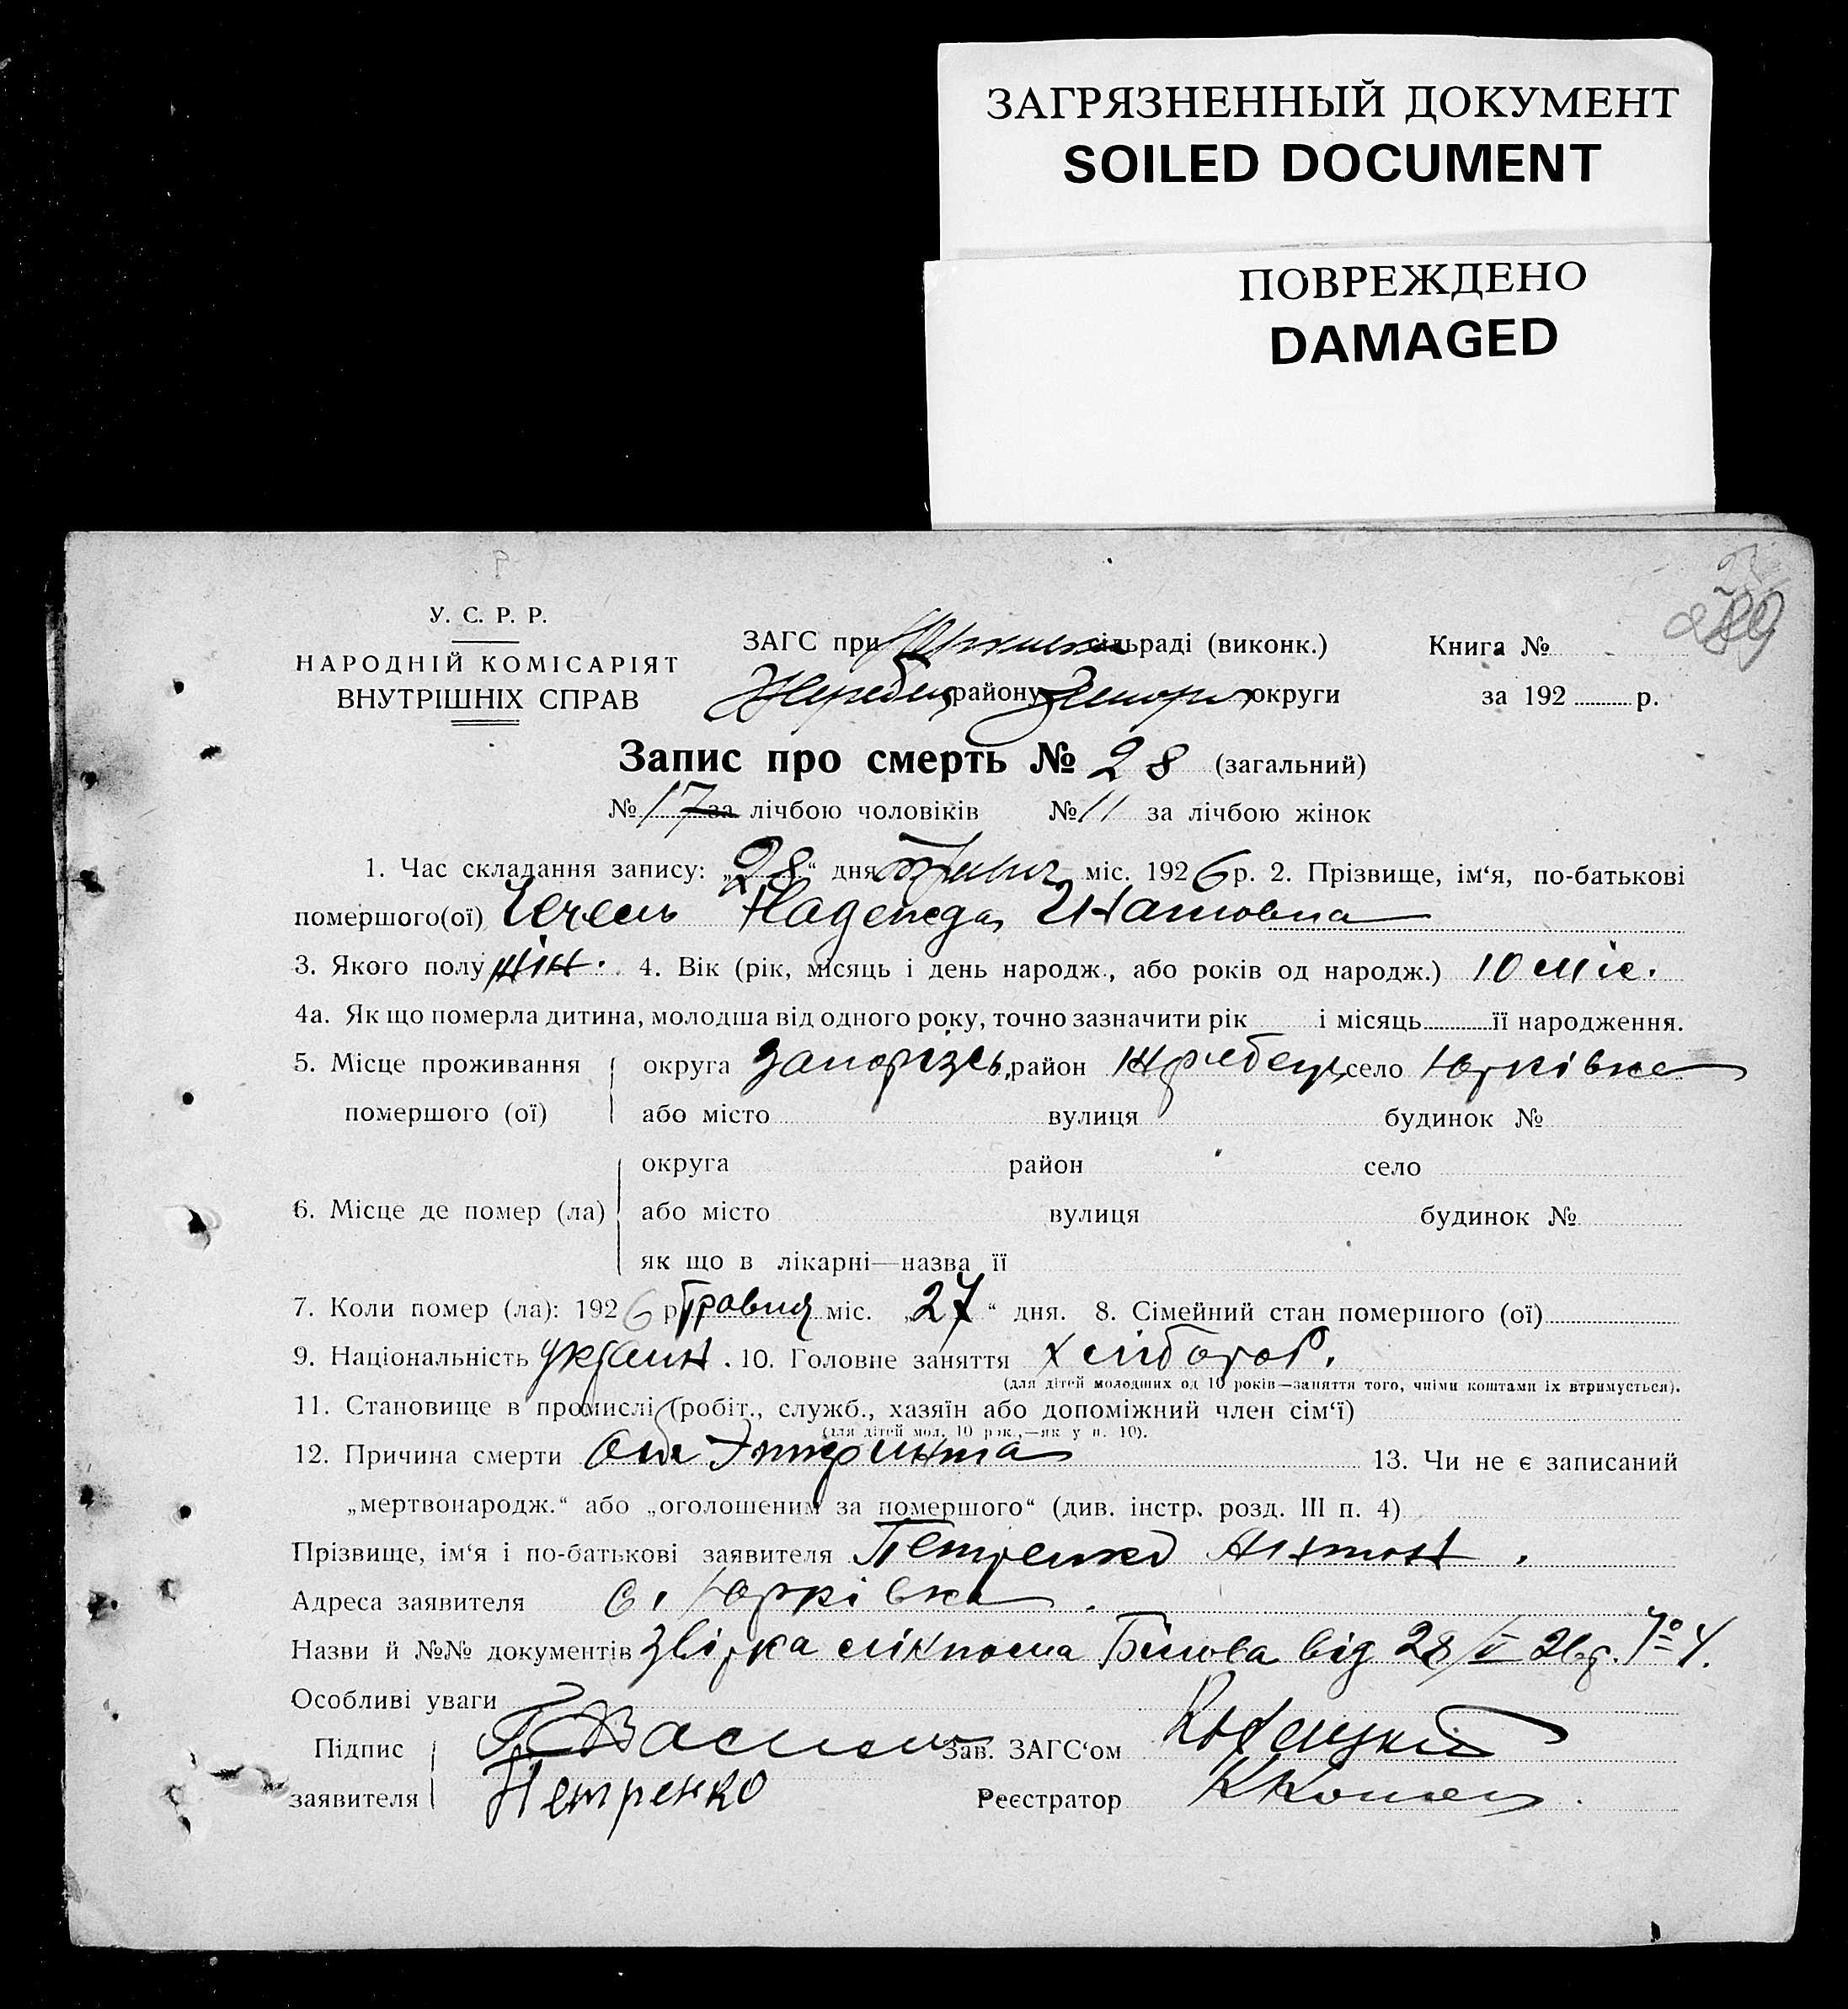 ЗАГРЯЗНЕННЫЙ ДОКУМЕНТ
SOILED DOCUMENT
ПОВРЕЖДЕНО
DAMAGED
289
У. С. Р. Р.
НАРОДНІЙ КОМІСАРІЯТ
ВНУТРІШНІХ СПРАВ
ЗАГС при сільраді (виконк.) Книга №
Жеребец району Запоріз округи за 192 р.
Запис про смерть № 28 (загальний)
№ 17 за лічбою чоловіків № 11 за лічбою жінок
1. Час складання запису: „28“ дня травня міс. 1926 р. 2. Прізвище, ім‘я, по-батькові
помершого(ої) Надежда
3. Якого полу жін. 4. Вік (рік, місяць і день народж., або років од народж.) 10 міс.
4а. Як що померла дитина, молодша від одного року, точно зазначити рік і місяць її народження.
5. Місце проживання округа Запорізь, район Жребець, село Юрківка
помершого (ої) або місто вулиця будинок №
округа район село
6. Місце де помер (ла) або місто вулиця будинок №
як що в лікарні—назва її
7. Коли помер (ла): 1926 р травня міс. „27“ дня. 8. Сімейний стан помершого (ої)
9. Національність україн. 10. Головне заняття хлібороб.
(для дітей молодших од 10 років—заняття того, чиїми коштами їх втримується).
11. Становище в промислі (робіт., служб., хазяїн або допоміжний член сім‘ї)
(для дітей мол. 10 рок.,—як у п. 10).
12. Причина смерти от 13. Чи не є записаний
„мертвонародж.“ або „оголошеним за помершого“ (див. інстр. розд. III п. 4)
Прізвище, ім‘я і по-батькові заявителя Петренко Антон.
Адреса заявителя с. Юрківка.
Назви й №№ документів від 28/V 26р. № 4.
Особливі уваги
Підпис Зав. ЗАГС‘ом
заявителя Петренко Реєстратор